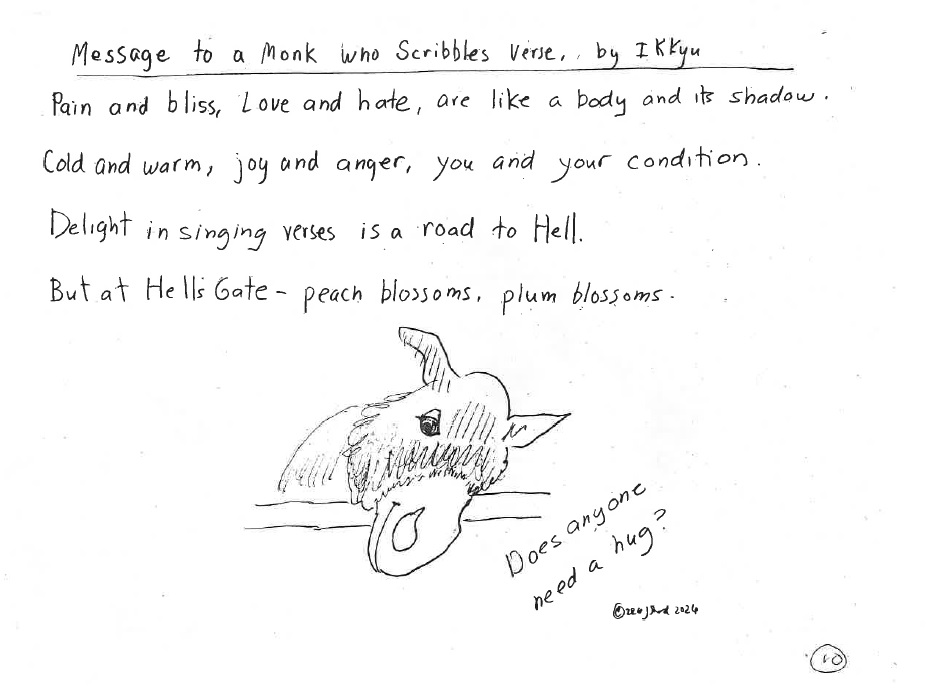 Message to a Monk who Scribbles Verse,. by IKKyu
Pain and bliss, Love and hate, are like a body and its shadow.
Cold and warm, joy and anger, you and your condition.
Delight in singing verses is a road to Hell.
But at Hell's Gate - peach blossoms, plum blossoms.
Does anyone
need a hug?
© 2024
10